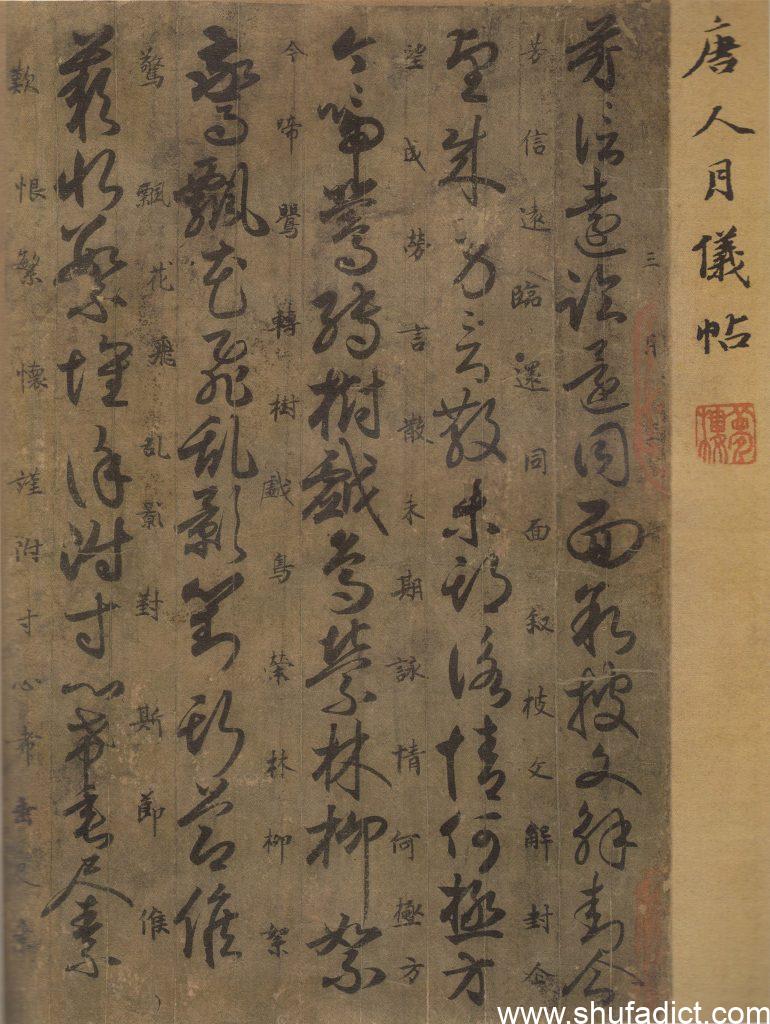 唐人月儀帖
夢樓
三月
芳信遠臨還同面叙披文解封企
芳信遠臨還同面叙枝文解封企
望成勞言散未期詠情何極方
望成勞言散未期詠情何極方
今啼鶯轉樹戲鳥縈林柳絮
今啼鶯轉樹戲鳥縈林柳絮
驚飄花飛乱影對斯節候
驚飄花飛乱影對斯節候
歎恨繁懷謹附寸心希垂尺素
歎恨繁懷謹附寸心希垂尺素
www.shufadict.com